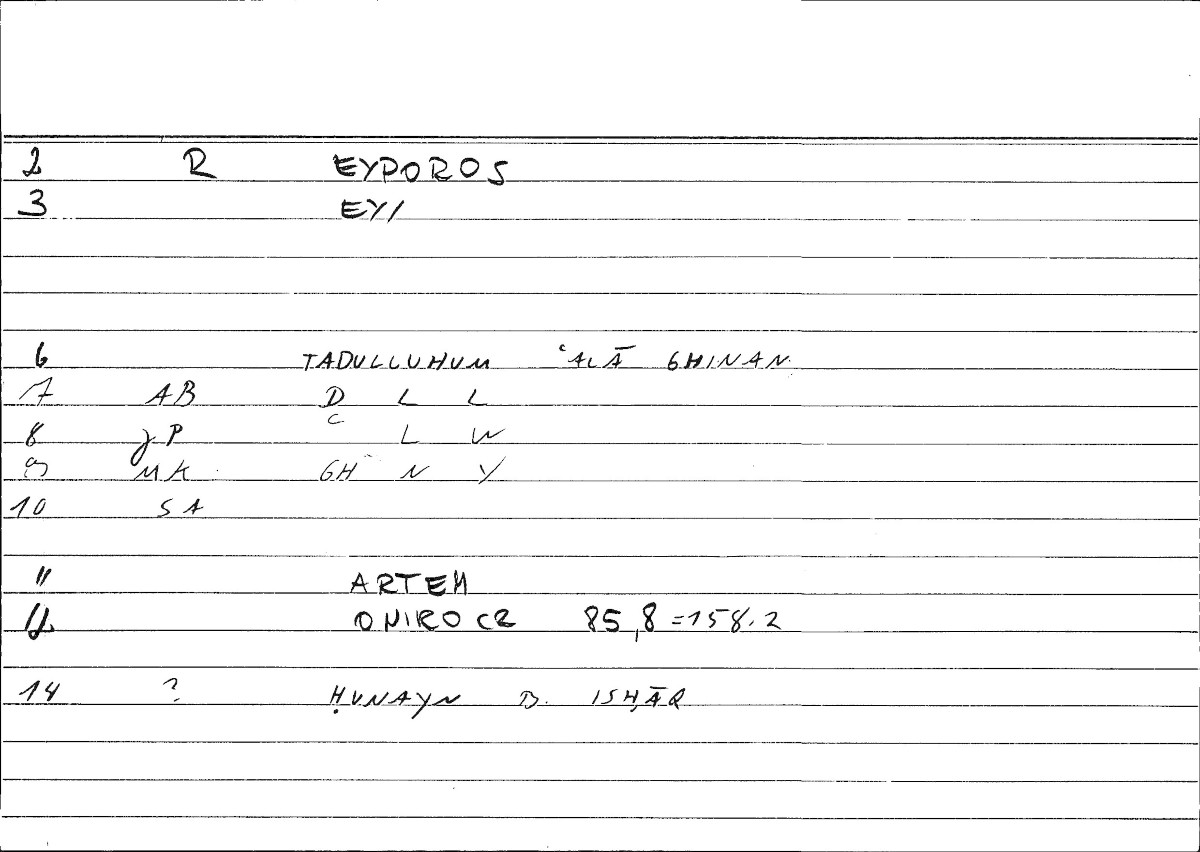 2 R EYPOROS
3 EY/
6 TADULLUHUM ʿALĀ GHINAN
7 AB D L L
8 JP ʿ L W
9 MK GH N Y
10 SA
11 ARTEM
12 ONIROCR 85,8=158.2
14 ? ḤUNAYN B. ISḤĀQ